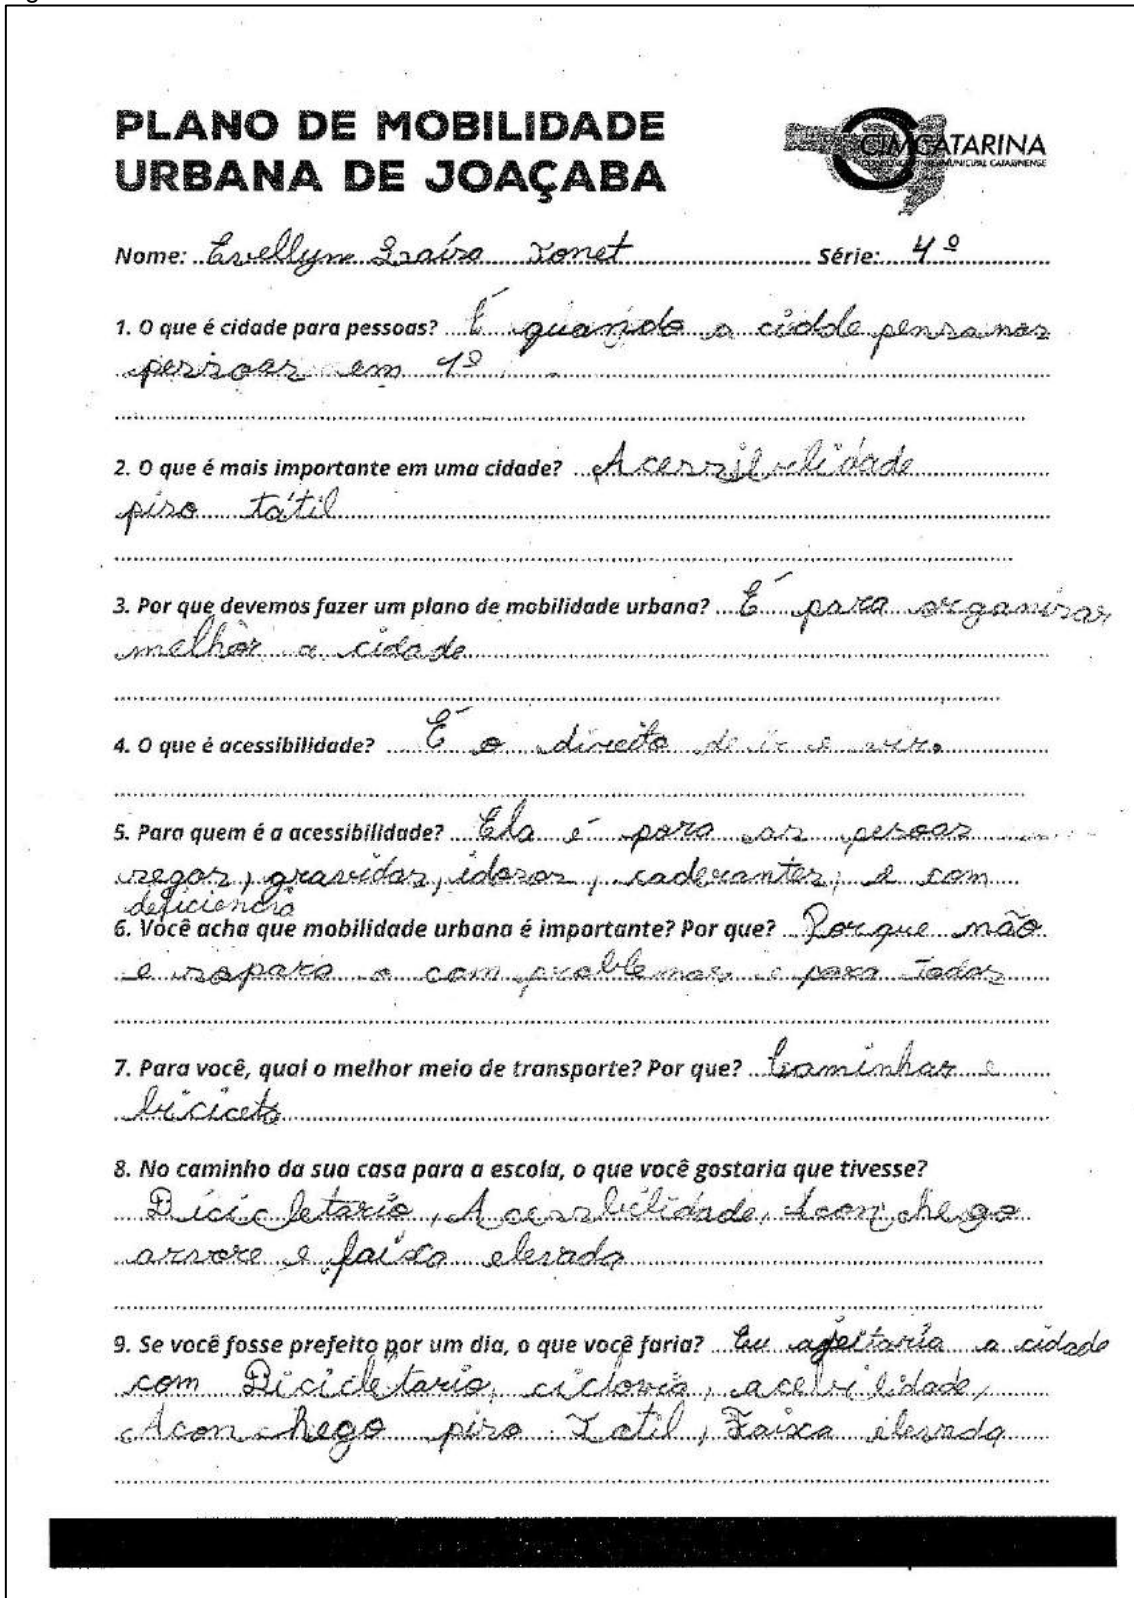 PLANO DE MOBILIDADE
URBANA DE JOAÇABA
CIMCATARINA
Nome: Evellyn Tonet Série: 4º
1. O que é cidade para pessoas? É quando a ciddde pensa nas
pessoas em 1º
2. O que é mais importante em uma cidade?
piso tátil
3. Por que devemos fazer um plano de mobilidade urbana? É para organisar
melhor a cidade
4. O que é acessibilidade? É o direito de ir e vir.
5. Para quem é a acessibilidade? Ela é para as pesoas
segas, gravidas, idosos, cadeirantes, e com
deficiencia
6. Você acha que mobilidade urbana é importante? Por que? Porque não
e so para com problemas e para todos
7. Para você, qual o melhor meio de transporte? Por que? Caminhar e
biciceta
8. No caminho da sua casa para a escola, o que você gostaria que tivesse?
Bicicletario, Aconchego
arvore e faixa elevada
9. Se você fosse prefeito por um dia, o que você faria? Eu ageitaria a cidade
com Bicicletario, ciclovia,
Aconchego piso Tatil, Faixa elevada